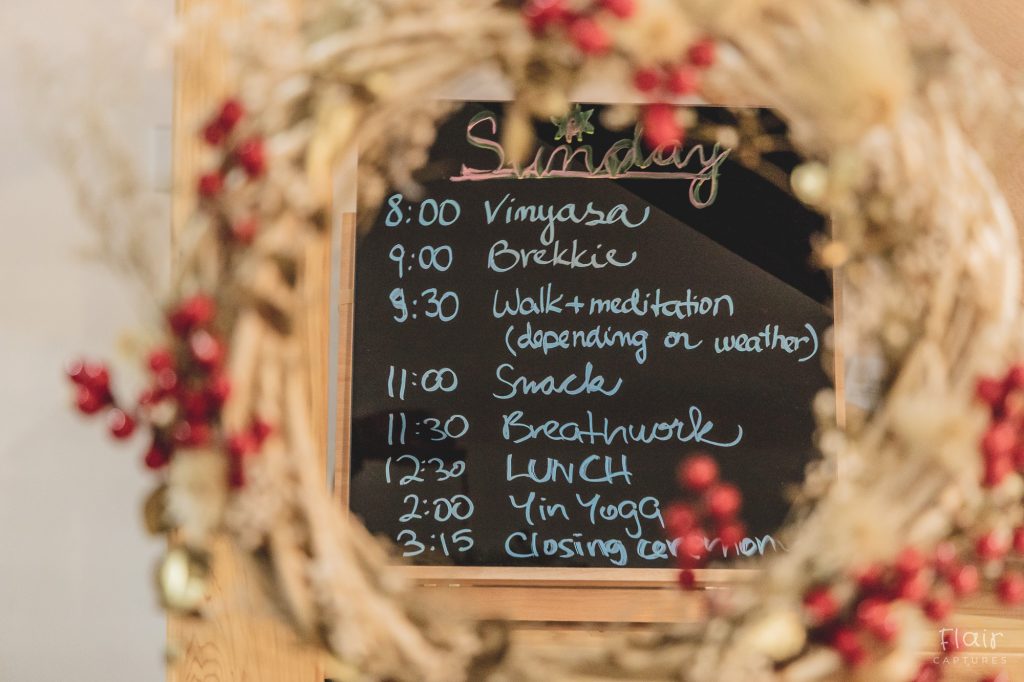 Sunday
8:00 Vinyasa
9:00 Brekkie
9:30 Walk + meditation
(depending or weather)
11:00 Snack
11:30 Breathwork
12:30 LUNCH
2:00 Yin Yoga
3:15 Closing ceremony
Flair
CAPTURES